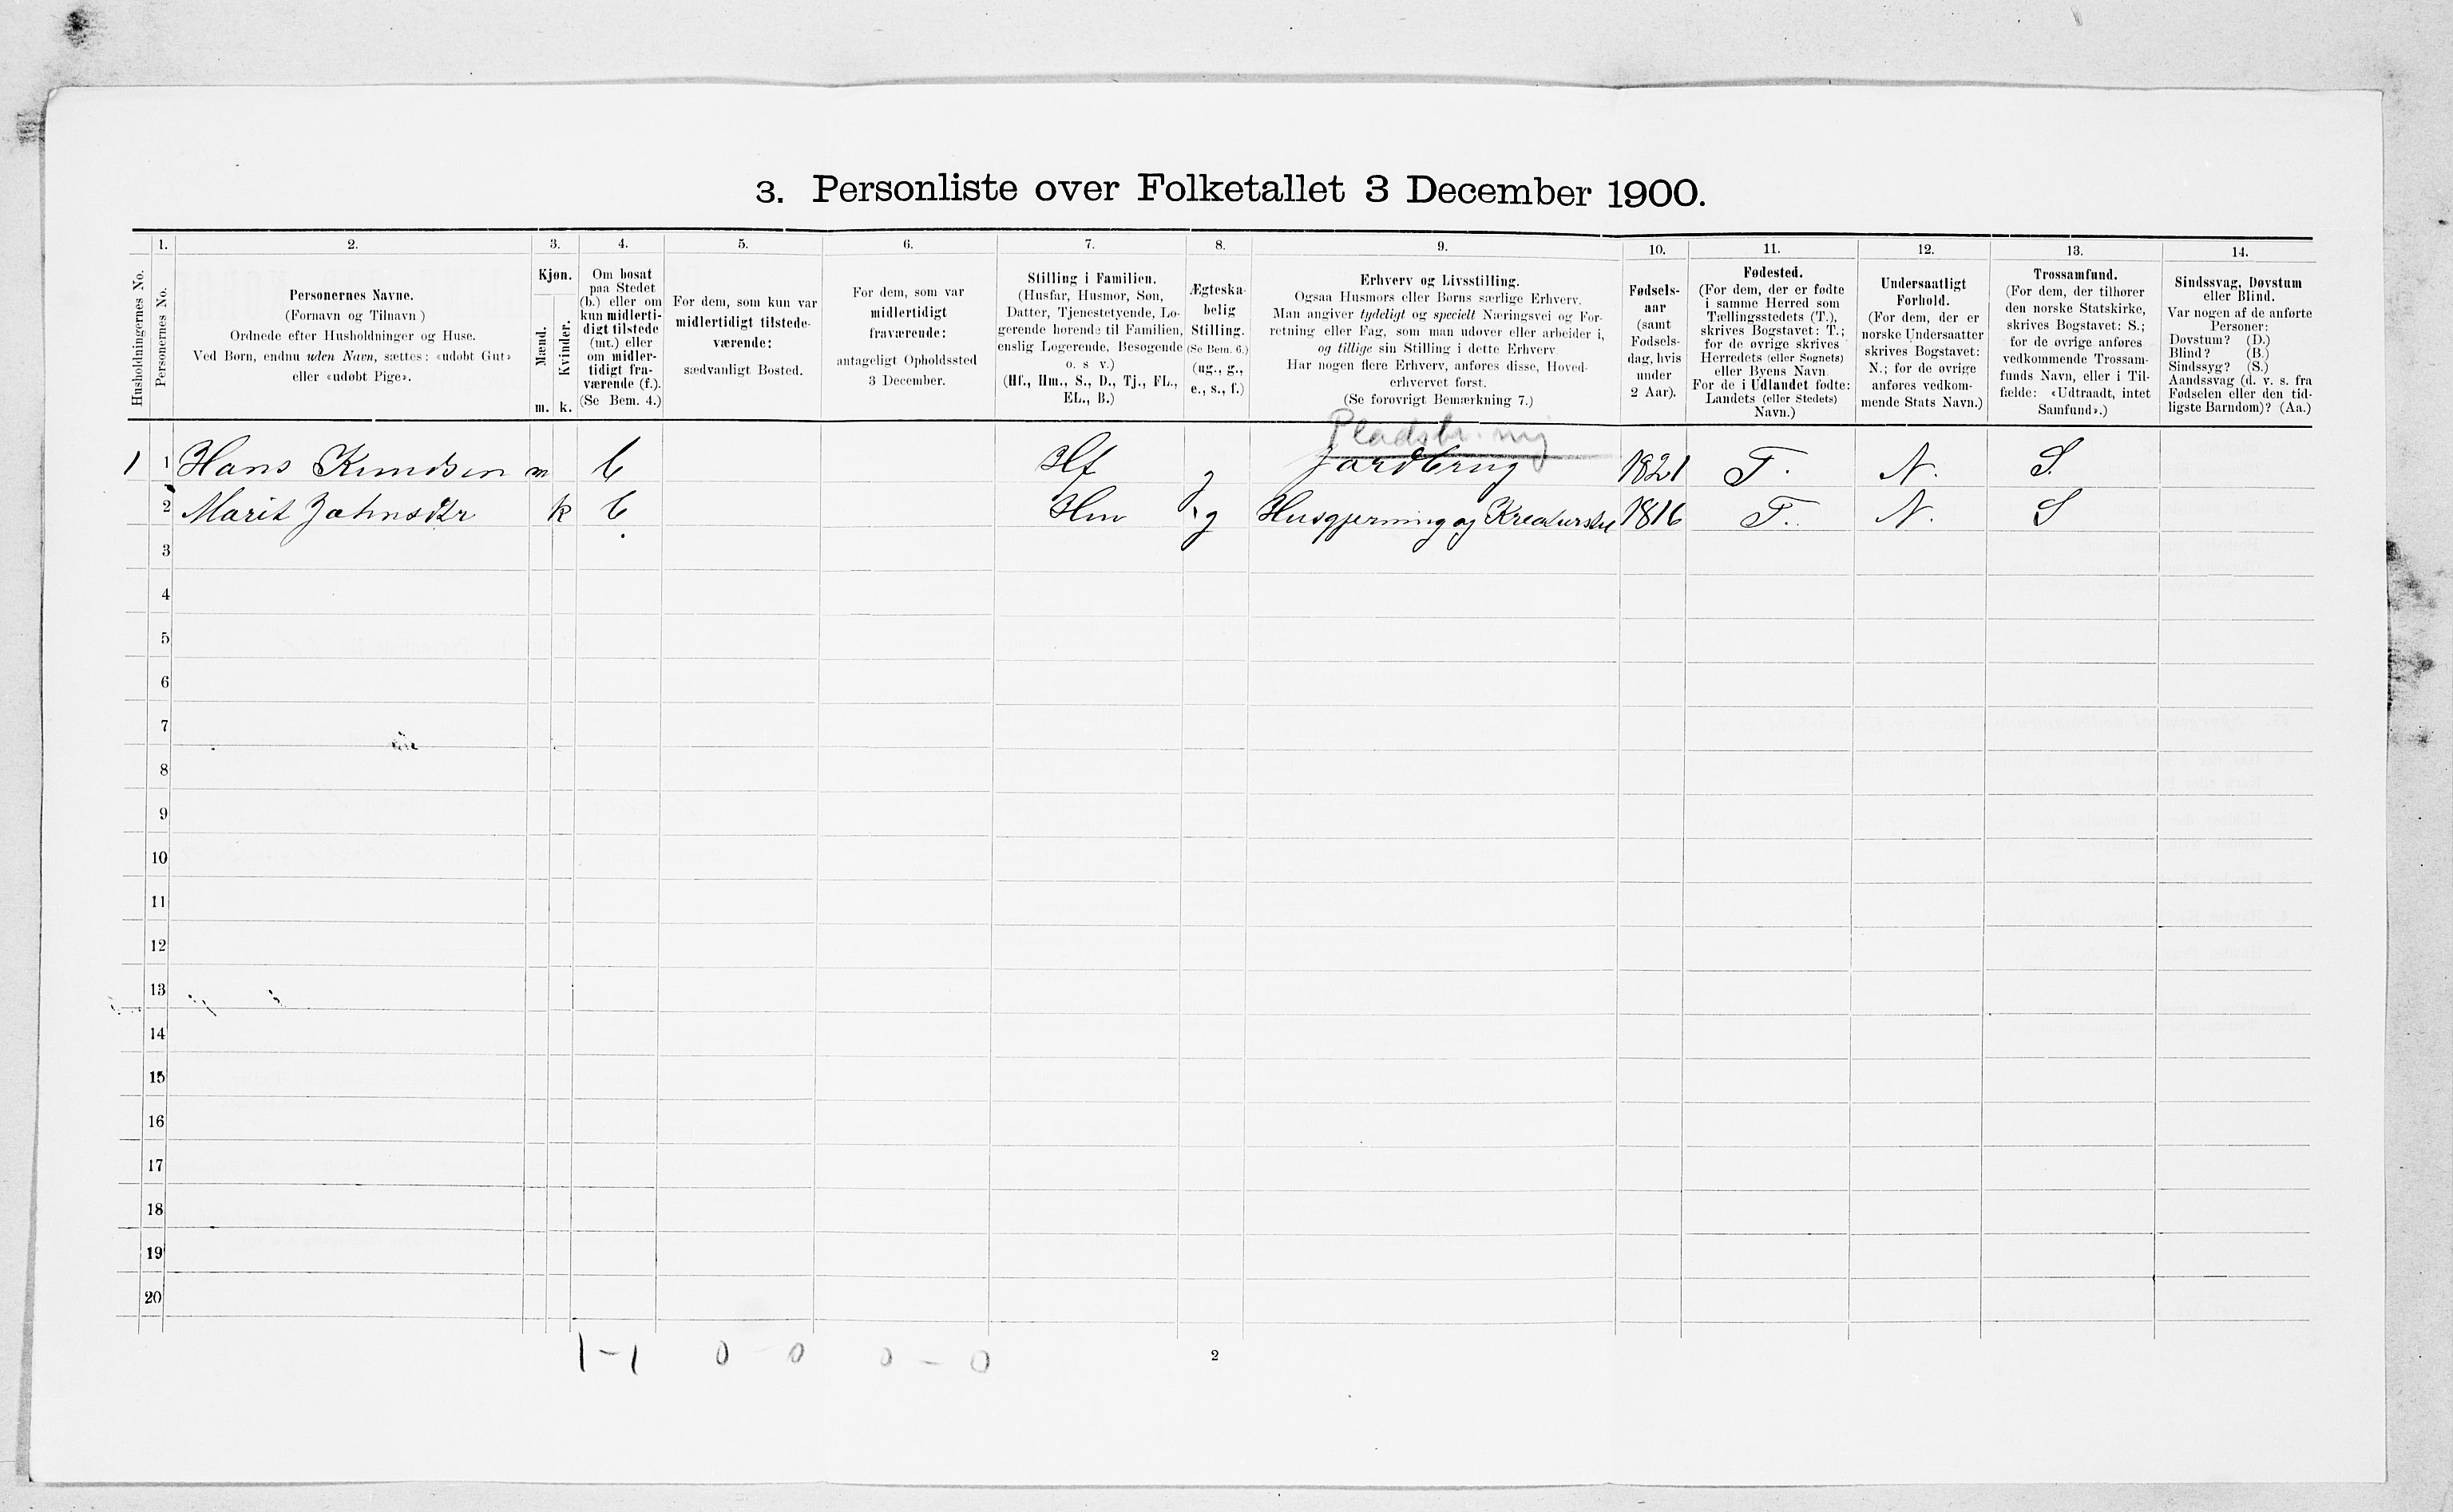 3. Personliste over Folketallet 3 December 1900.
Husholdningernes No.
1.
Personernes No.
2.
Personernes Navne.
(Fornavn og Tilnavn)
Ordnede efter Husholdninger og Huse.
Ved Børn, endnu uden Navn, sættes: «udøbt Gut»
eller «udøbt Pige».
3.
Kjøn.
Mænd.
Kvinder.
m. k.
4.
Om bosat
paa Stedet
(b.) eller om
kun midlerti-
digt tilstede
(mt.) eller
om midler-
tidigt fra-
værende (f.).
(Se Bem. 4.)
5.
For dem, som kun var
midlertidigt tilstede-
værende:
sædvanligt Bosted.
6.
For dem, som var
midlertidigt
fraværende:
antageligt Opholdssted
3 December.
7.
Stilling i Familien.
(Husfar, Husmor, Søn,
Datter, Tjenestetyende, Lo-
gerende hørende til Familien,
enslig Logerende, Besøgende
o. s v.)
(Hf., Hm., S., D., Tj., FL.,
EL., B.)
8.
Ægteska-
belig
Stilling.
(Se Bem. 6.)
(ug., g.,
e., s., f.)
9.
Erhverv og Livsstilling.
Ogsaa Husmors eller Børns særlige Erhverv.
Man angiver tydeligt og specielt Næringsvei og For-
retning eller Fag, som man udøver eller arbeider i,
og tillige sin Stilling i dette Erhverv
Har nogen flere Erhverv, anføres disse, Hoved-
erhvervet først.
(Se forøvrigt Bemærkning 7.)
10.
Fødsels-
aar
(samt
Fødsels-
dag, hvis
under
2 Aar).
11.
Fødested.
(For dem, der er fødte
i samme Herred som
Tællingsstedets (T.),
skrives Bogstavet: T.;
for de øvrige skrives
Herredets (eller Sognets)
eller Byens Navn
For de i Udlandet fødte:
Landets (eller Stedets)
Navn.)
12.
Undersaatligt
Forhold.
(For dem, der er
norske Undersaatter
skrives Bogstavet:
N.; for de øvrige
anføres vedkom-
mende Stats Navn.)
13.
Trossamfund.
(For dem, der tilhører
den norske Statskirke,
skrives Bogstavet: S.;
for de øvrige anføres
vedkommende Trossam-
funds Navn, eller i Til-
fælde: «Udtraadt, intet
Samfund».)
14.
Sindssvag, Døvstum
eller Blind.
Var nogen af de anførte
Personer:
Døvstum? (D.)
Blind? (B.)
Sindssyg? (S.)
Aandssvag (d. v. s. fra
Fødselen eller den tid-
ligste Barndom)? (Aa.)
1 1 Hans Knudsen m b Hf g Jordbrug 1821 T. N. S.
2 Marit Johnsdtr k b Hm g Husgjerning og Kreaturstel 1816 T. N. S
3
4
5
6
7
8
9
10
11
12
13
14
15
16
17
18
19
20
1-1 0 - 0 0 - 0
2